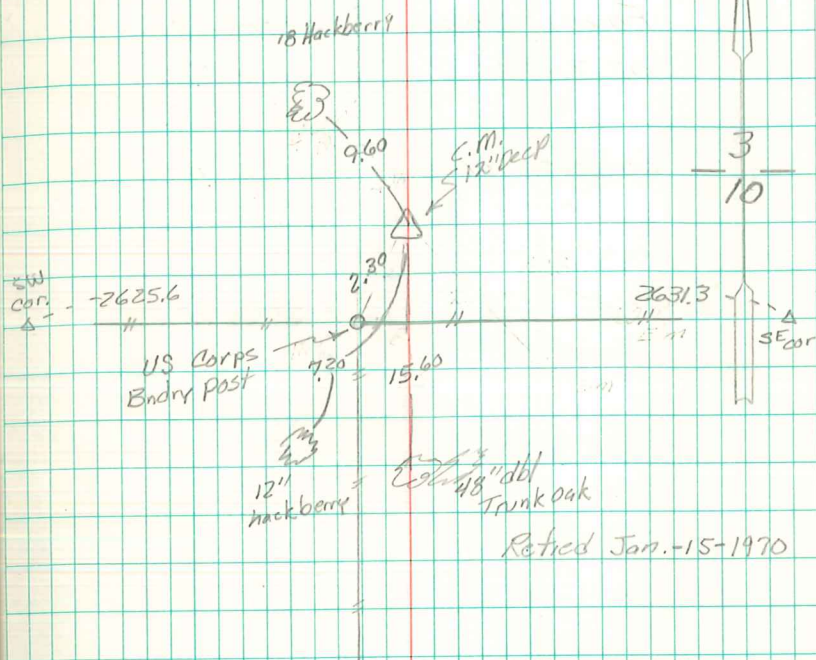 18 Hackberry
9.60
C.M.
12" Deep
3
10
2.30
SW
cor.
2625.6
2631.3
SE cor
US Corps
Bndry Post
7.20
15.60
12"
hackberry
48" dbl
Trunk oak
Retied Jan.-15-1970